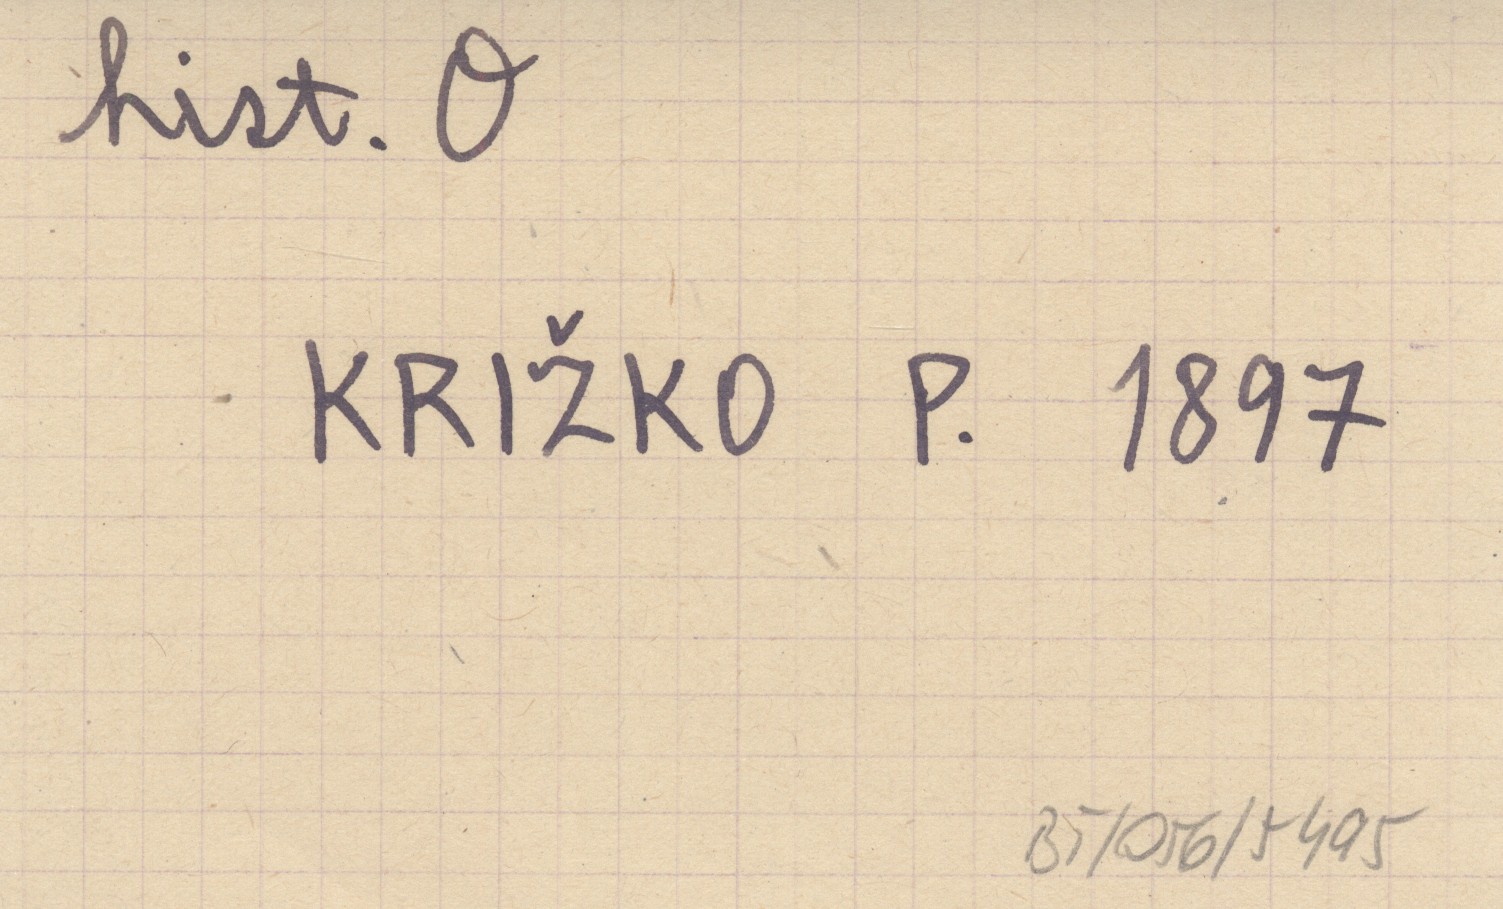 hist. O
KRIŽKO P. 1897
BŠ/056/5495